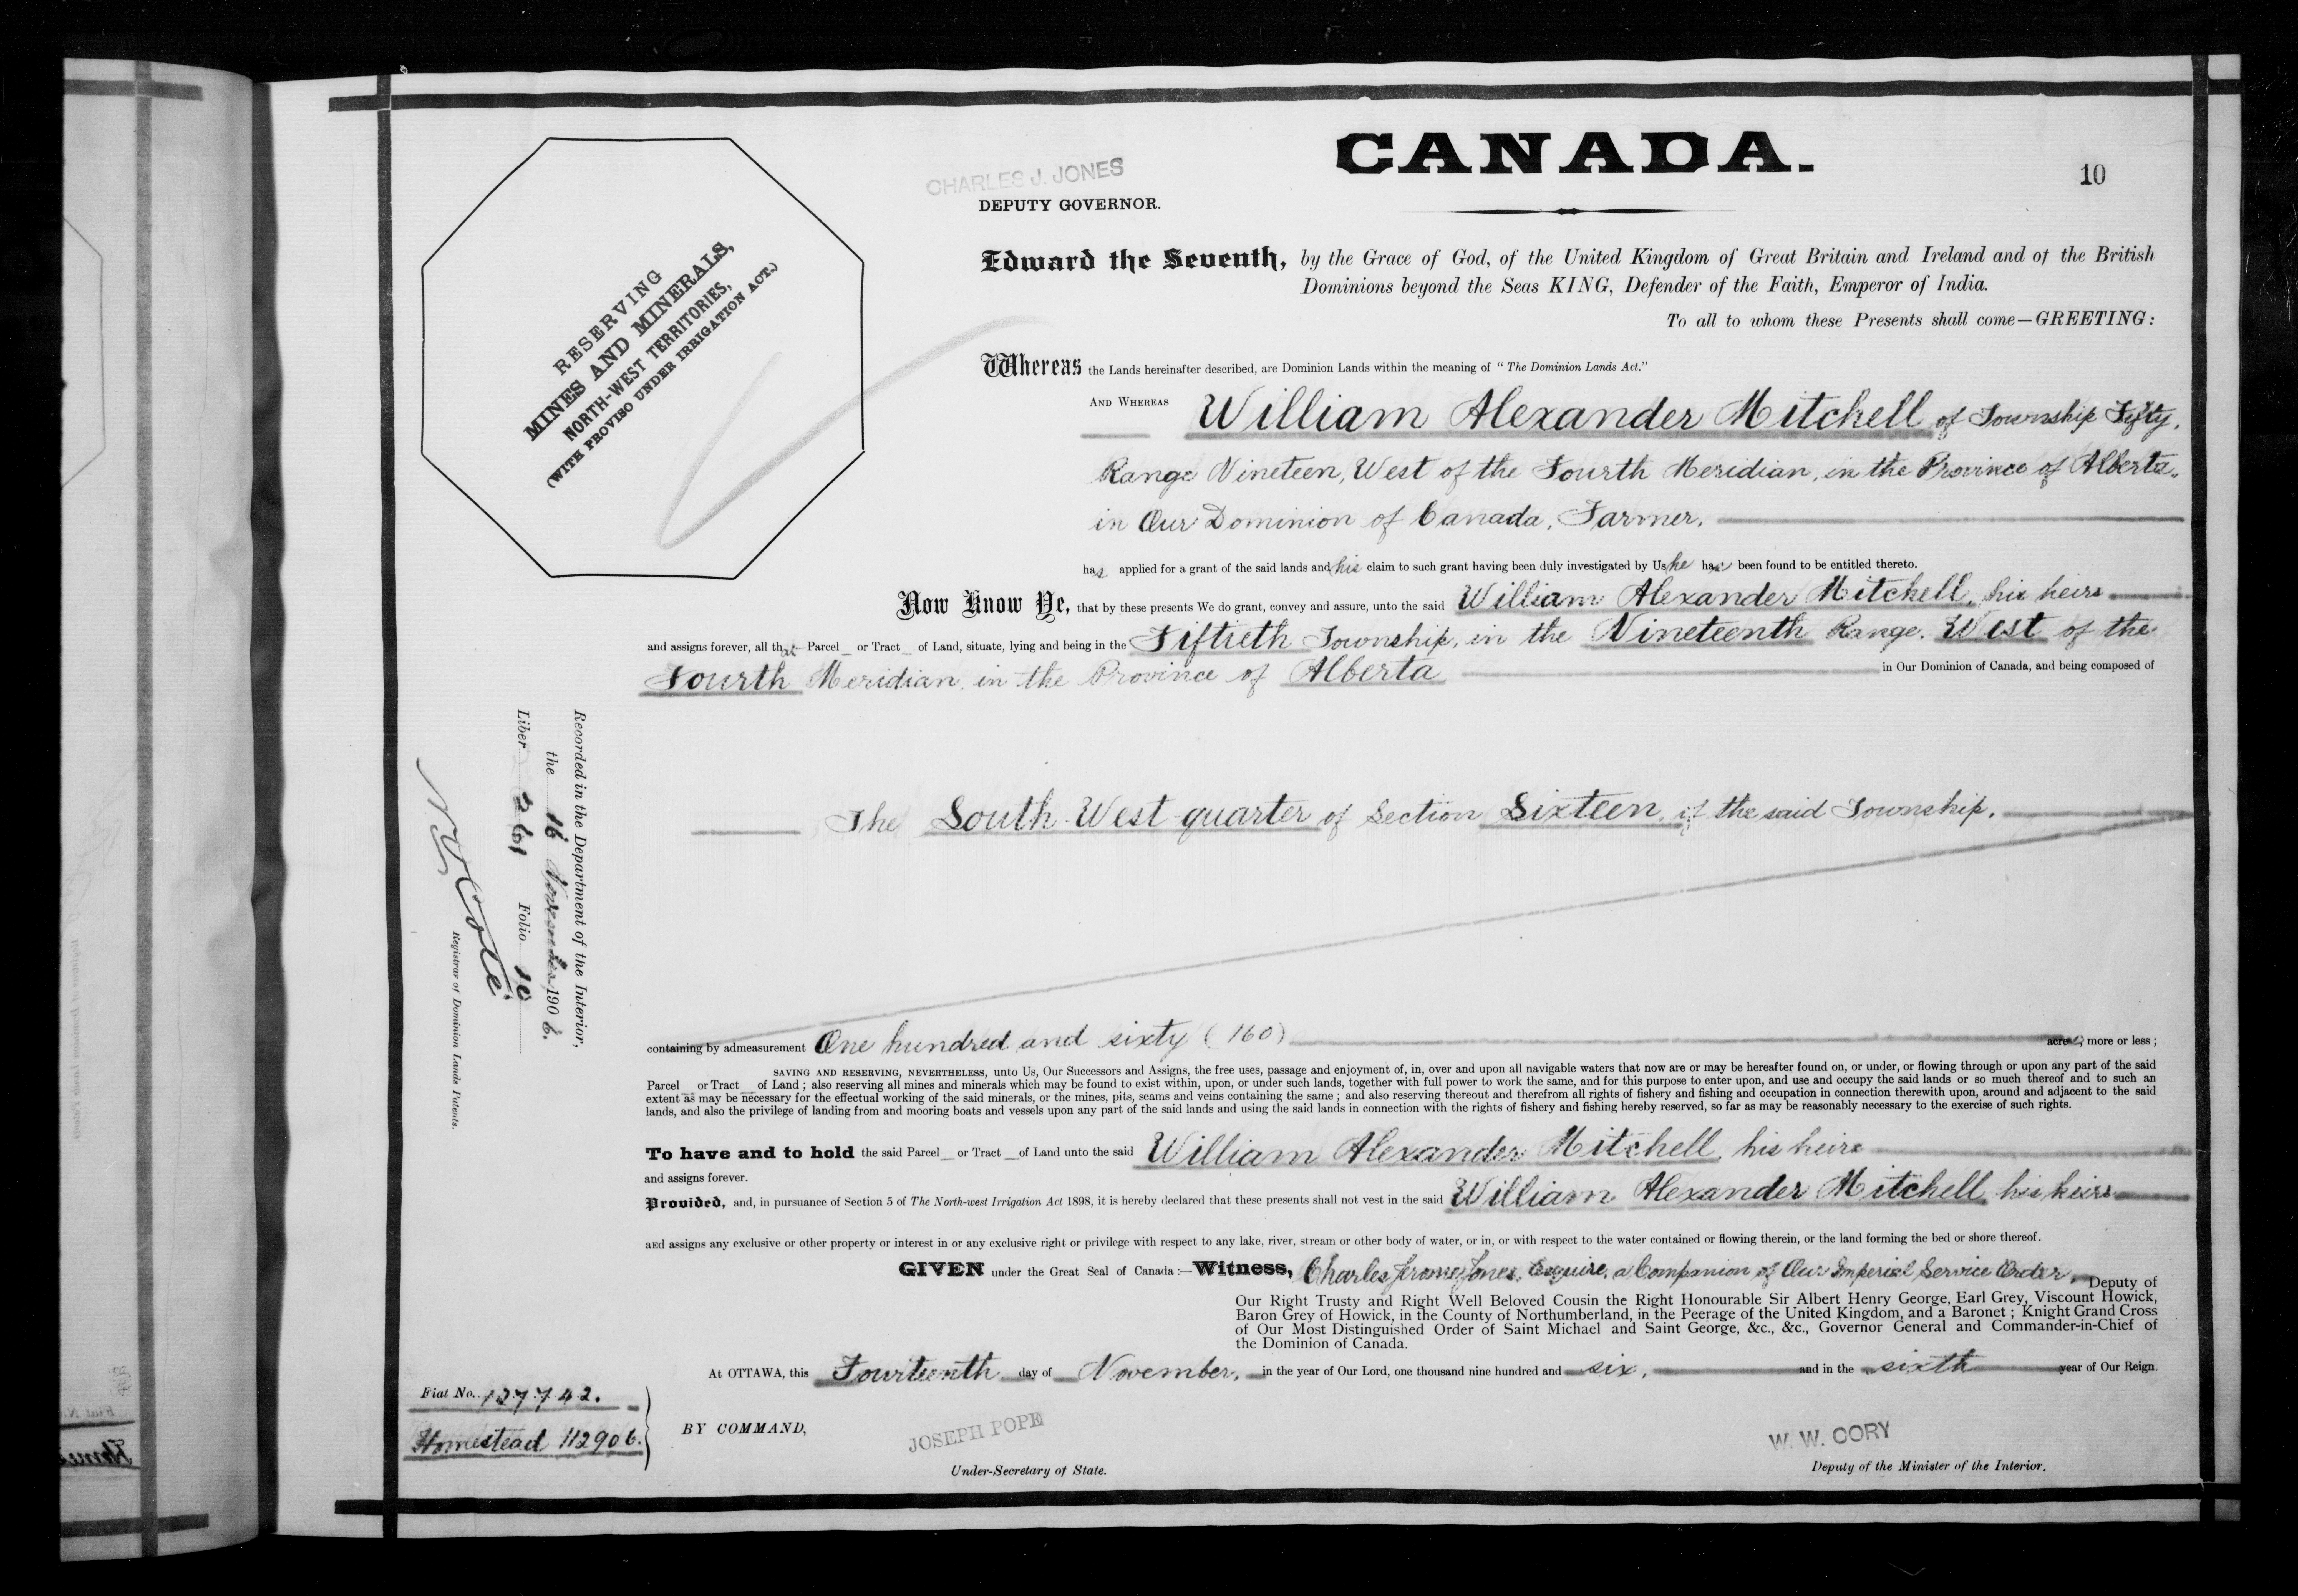 CANADA.
10
CHARLES J. JONES
DEPUTY GOVERNOR.
RESERVING
MINES AND MINERALS,
NORTH-WEST TERRITORIES,
(WITH PROVISO UNDER IRRIGATION ACT.)
Edward the Seventh, by the Grace of God, of the United Kingdom of Great Britain and Ireland and of the British
Dominions beyond the Seas KING, Defender of the Faith, Emperor of India.
To all to whom these Presents shall come—GREETING:
Whereas the Lands hereinafter described, are Dominion Lands within the meaning of "The Dominion Lands Act."
AND WHEREAS William Alexander Mitchell of Township Fifty,
Range Nineteen, West of the Fourth Meridian, in the Province of Alberta,
in Our Dominion of Canada, Farmer,
has applied for a grant of the said lands and his claim to such grant having been duly investigated by Us he has been found to be entitled thereto.
Now Know Ye, that by these presents We do grant, convey and assure, unto the said William Alexander Mitchell, his heirs
and assigns forever, all that Parcel or Tract of Land, situate, lying and being in the Fiftieth Township, in the Nineteenth Range, West of the
Fourth Meridian, in the Province of Alberta in Our Dominion of Canada, and being composed of
The South West quarter of Section Sixteen, of the said Township.
Recorded in the Department of the Interior,
the 16 November 1906.
Liber 261 Folio 10
N O Coté
Registrar of Dominion Lands Patents.
containing by admeasurement One hundred and sixty (160) acres, more or less;
SAVING AND RESERVING, NEVERTHELESS, unto Us, Our Successors and Assigns, the free uses, passage and enjoyment of, in, over and upon all navigable waters that now are or may be hereafter found on, or under, or flowing through or upon any part of the said
Parcel or Tract of Land; also reserving all mines and minerals which may be found to exist within, upon, or under such lands, together with full power to work the same, and for this purpose to enter upon, and use and occupy the said lands or so much thereof and to such an
extent as may be necessary for the effectual working of the said minerals, or the mines, pits, seams and veins containing the same; and also reserving thereout and therefrom all rights of fishery and fishing and occupation in connection therewith upon, around and adjacent to the said
lands, and also the privilege of landing from and mooring boats and vessels upon any part of the said lands and using the said lands in connection with the rights of fishery and fishing hereby reserved, so far as may be reasonably necessary to the exercise of such rights.
To have and to hold the said Parcel or Tract of Land unto the said William Alexander Mitchell, his heirs
and assigns forever.
Provided, and, in pursuance of Section 5 of The North-west Irrigation Act 1898, it is hereby declared that these presents shall not vest in the said William Alexander Mitchell, his heirs
and assigns any exclusive or other property or interest in or any exclusive right or privilege with respect to any lake, river, stream or other body of water, or in, or with respect to the water contained or flowing therein, or the land forming the bed or shore thereof.
GIVEN under the Great Seal of Canada:—Witness, Charles Jerome Jones, Esquire, a Companion of Our Imperial Service Order, Deputy of
Our Right Trusty and Right Well Beloved Cousin the Right Honourable Sir Albert Henry George, Earl Grey, Viscount Howick,
Baron Grey of Howick, in the County of Northumberland, in the Peerage of the United Kingdom, and a Baronet; Knight Grand Cross
of Our Most Distinguished Order of Saint Michael and Saint George, &c., &c., Governor General and Commander-in-Chief of
the Dominion of Canada.
At OTTAWA, this Fourteenth day of November, in the year of Our Lord, one thousand nine hundred and six, and in the sixth year of Our Reign
Fiat No. 127742.
Homestead 112906.
BY COMMAND,
JOSEPH POPE
Under-Secretary of State.
W. W. CORY
Deputy of the Minister of the Interior.